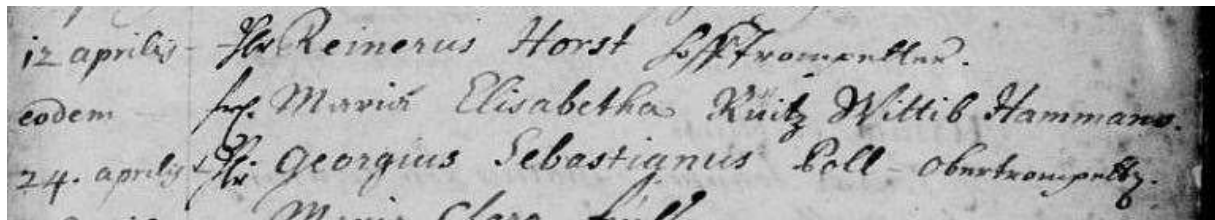 12 aprilis Hr Reinerus Horst Hofftrompetter.
eodem fr. Maria Elisabetha Rüitz Wittib Hammans.
24. aprilis Hr. Georgius Sebastianus Poll - obertrompettr.
Maria Clara